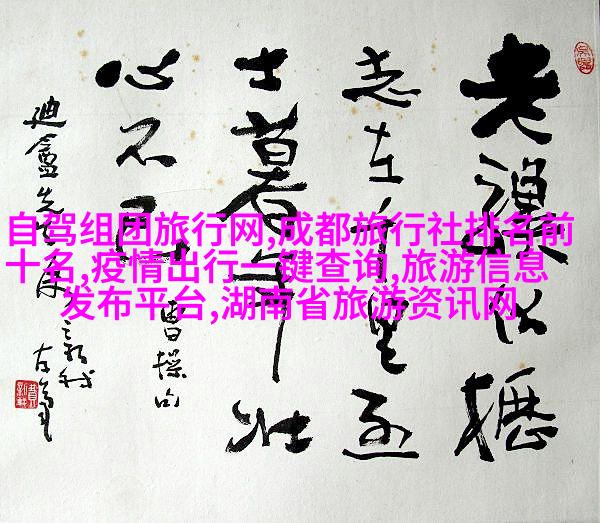 老驥伏櫪
志在千里烈
士暮年壯
心不已
曹操句
迪盦先生
自驾组团旅行网,成都旅行社排名前
十名,疫情出行一键查询,旅游信息
发布平台,湖南省旅游资讯网